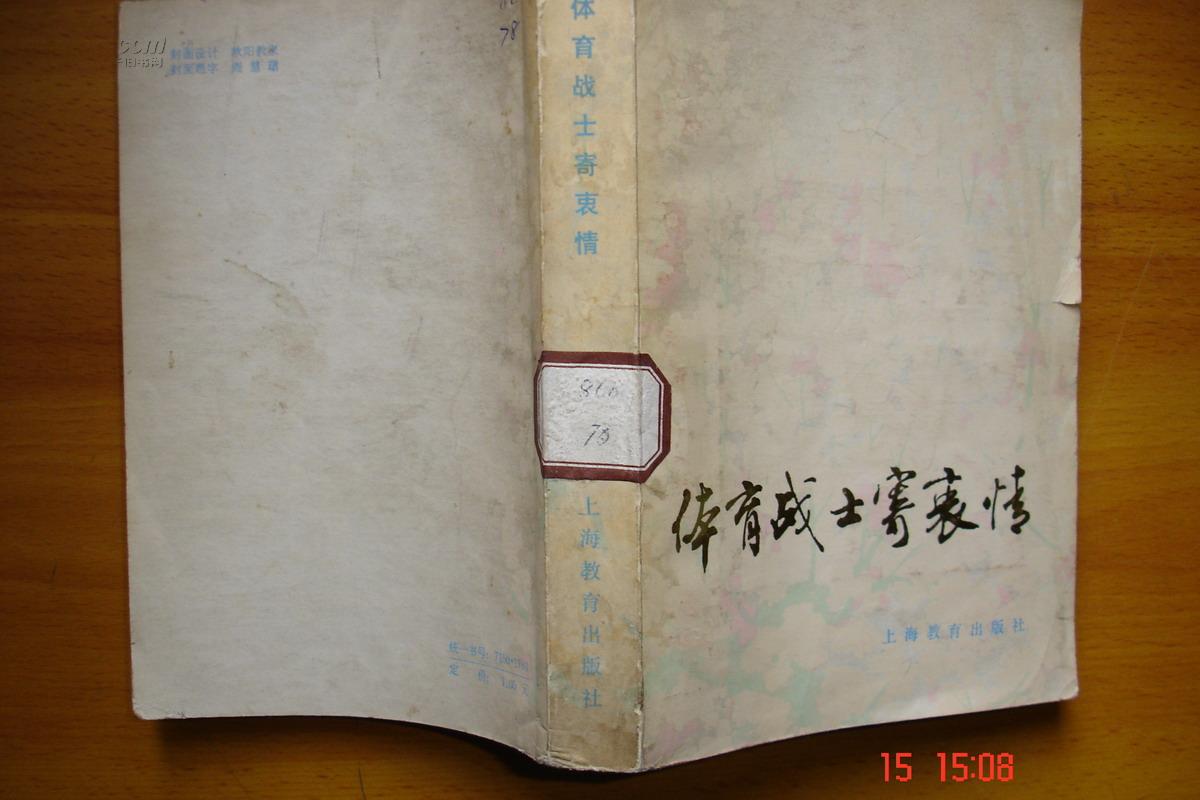 封面设计 欧阳教家
封面题字 周慧珺
78
体育战士寄衷情
78
上海教育出版社
体育战士寄衷情
上海教育出版社
统一书号:
定 价: 1.00 元
15 15:08